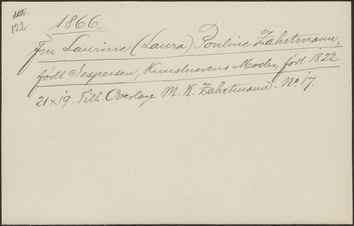 122
1866.
Fru Laurine (Laura) Pouline Zahrtmann,
født Jespersen, Kunstnerens Moder, født 1822
21 x 19. Tilh. Overlæge M. K. Zahrtmann. No 17.